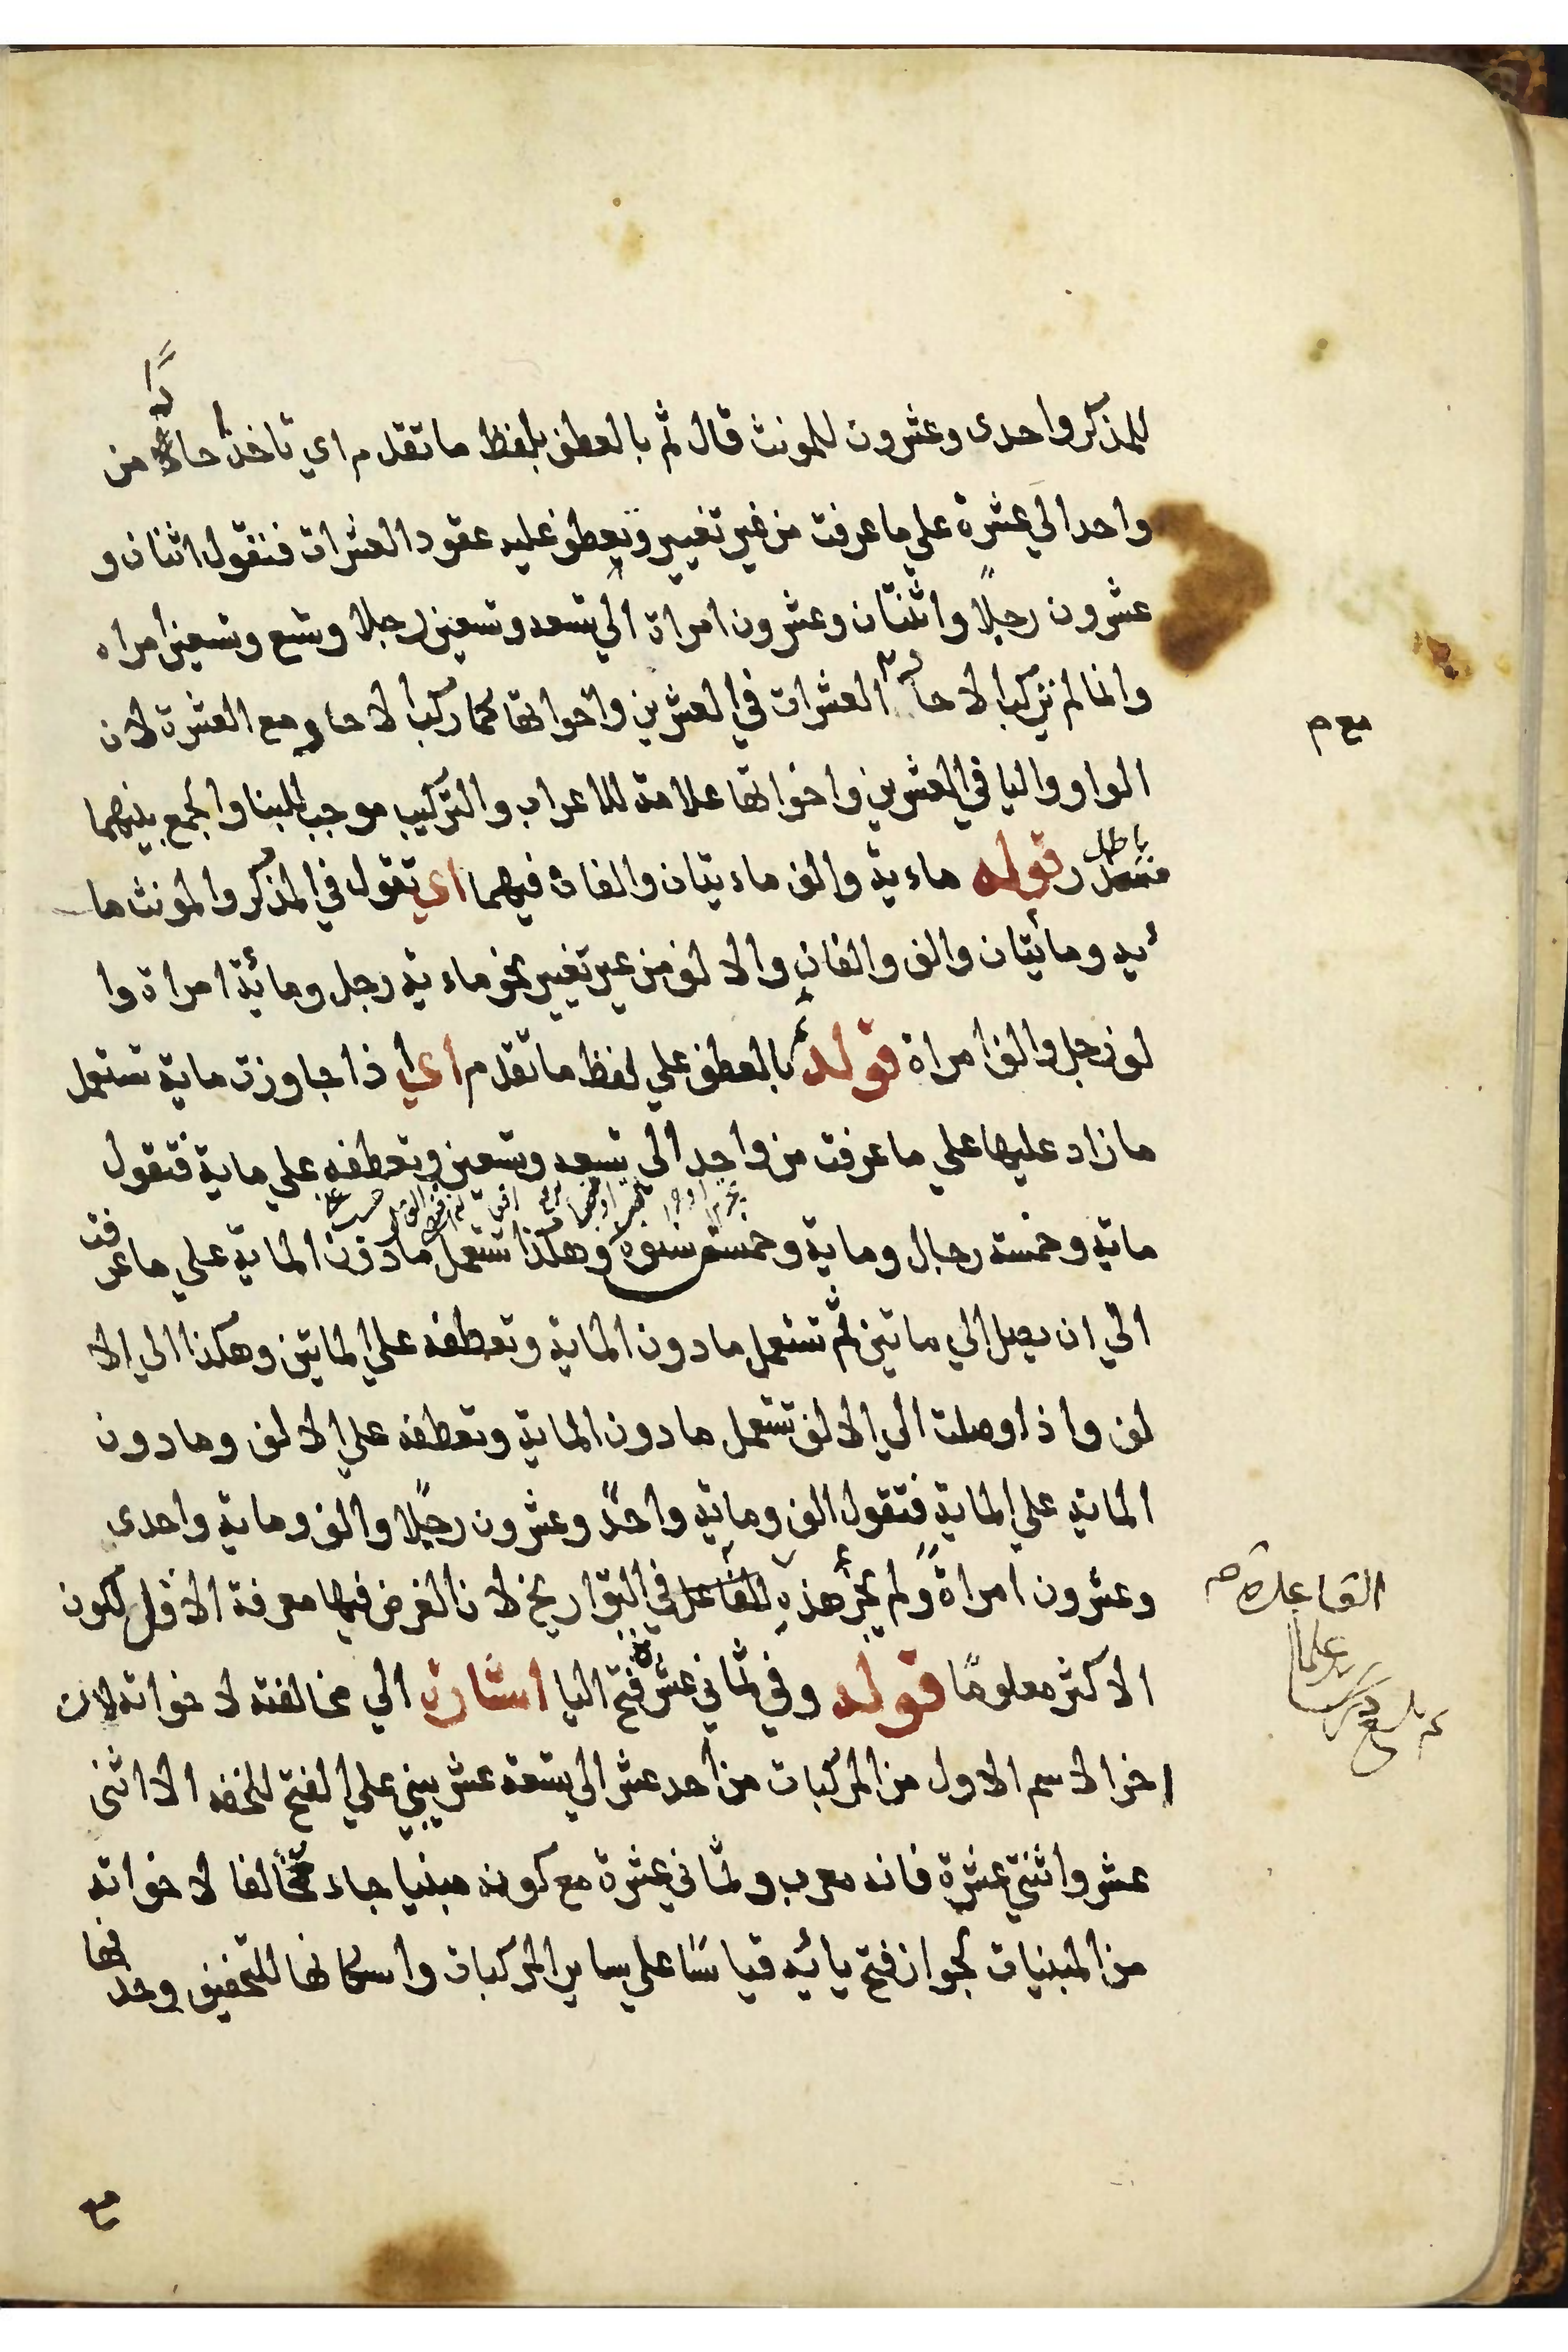 للمذكر واحدى وعشرون للمونث قال ثم بالعطف بلفظ ما تقدم اي تاخذ احادًا من
واحد الي عشرة علي ما عرفت من غير تغيير وتعطف عليه عقود العشرات فنقول اثنان و
عشرون رجلًا واثنتان وعشرون امراة الي تسعه وتسعين رجلا وتسع وتسعين امراه
وانما لم تركب الاحاد العشرات في العشرين واخواتها كما ركب الاحاد مع العشرة لان
مع م
الواو واليا في العشرين واخواتها علامة للاعراب والتركيب موجب للبنا والجمع بينهما
باطل
قوله ماءية والف ماءيتان والفان فيهما اي تقول في المذكر والمونث ما
ئيه ومائيتان والف والفان والالف من غير تغيير نحو ماءية رجل ومائة امراة وا
لف رجل والف امراة قوله ثم بالعطف علي لفظ ما تقدم اي اذا جاوزت ماية تستعمل
ما زاد عليها علي ما عرفت من واحد الي تسعه وتسعين وتعطفه علي ماية فتقول
ماية وخمسة رجال وماية وخمسة نسوة وهكذا تستعمل ما دون الماية علي ما عرفت
الي ان يصل الي ماتين ثم تستعمل ما دون الماية وتعطفه علي الماتين وهكذا الي الا
لف واذا وصلت الي الالف تستعمل ما دون الماية وتعطفه علي الالف وما دون
الماية علي الماية فتقول الف وماية واحدً وعشرون رجلًا والف وماية واحدى
وعشرون امراةً ولم يجز هذه الفاعل في التواريخ لان الغرض فيها معرفة الاقل لكون
القاعدة صح
الاكثر معلومًا قوله وفي ثماني عشرة فتح اليا اشارة الي مخالفته لاخواته لان
اخر الاسم الاول من المركبات من احد عشر الي تسعة عشر يبني علي الفتح للخفه الا اثنى
عشر واثنتي عشرة فانه معرب وثماني عشرة مع كونه مبنيا جاء مخالفا لاخواته
من المبنيات لجواز فتح يائه قياسًا علي ساير المركبات واسكانها للتخفيف وحذفها